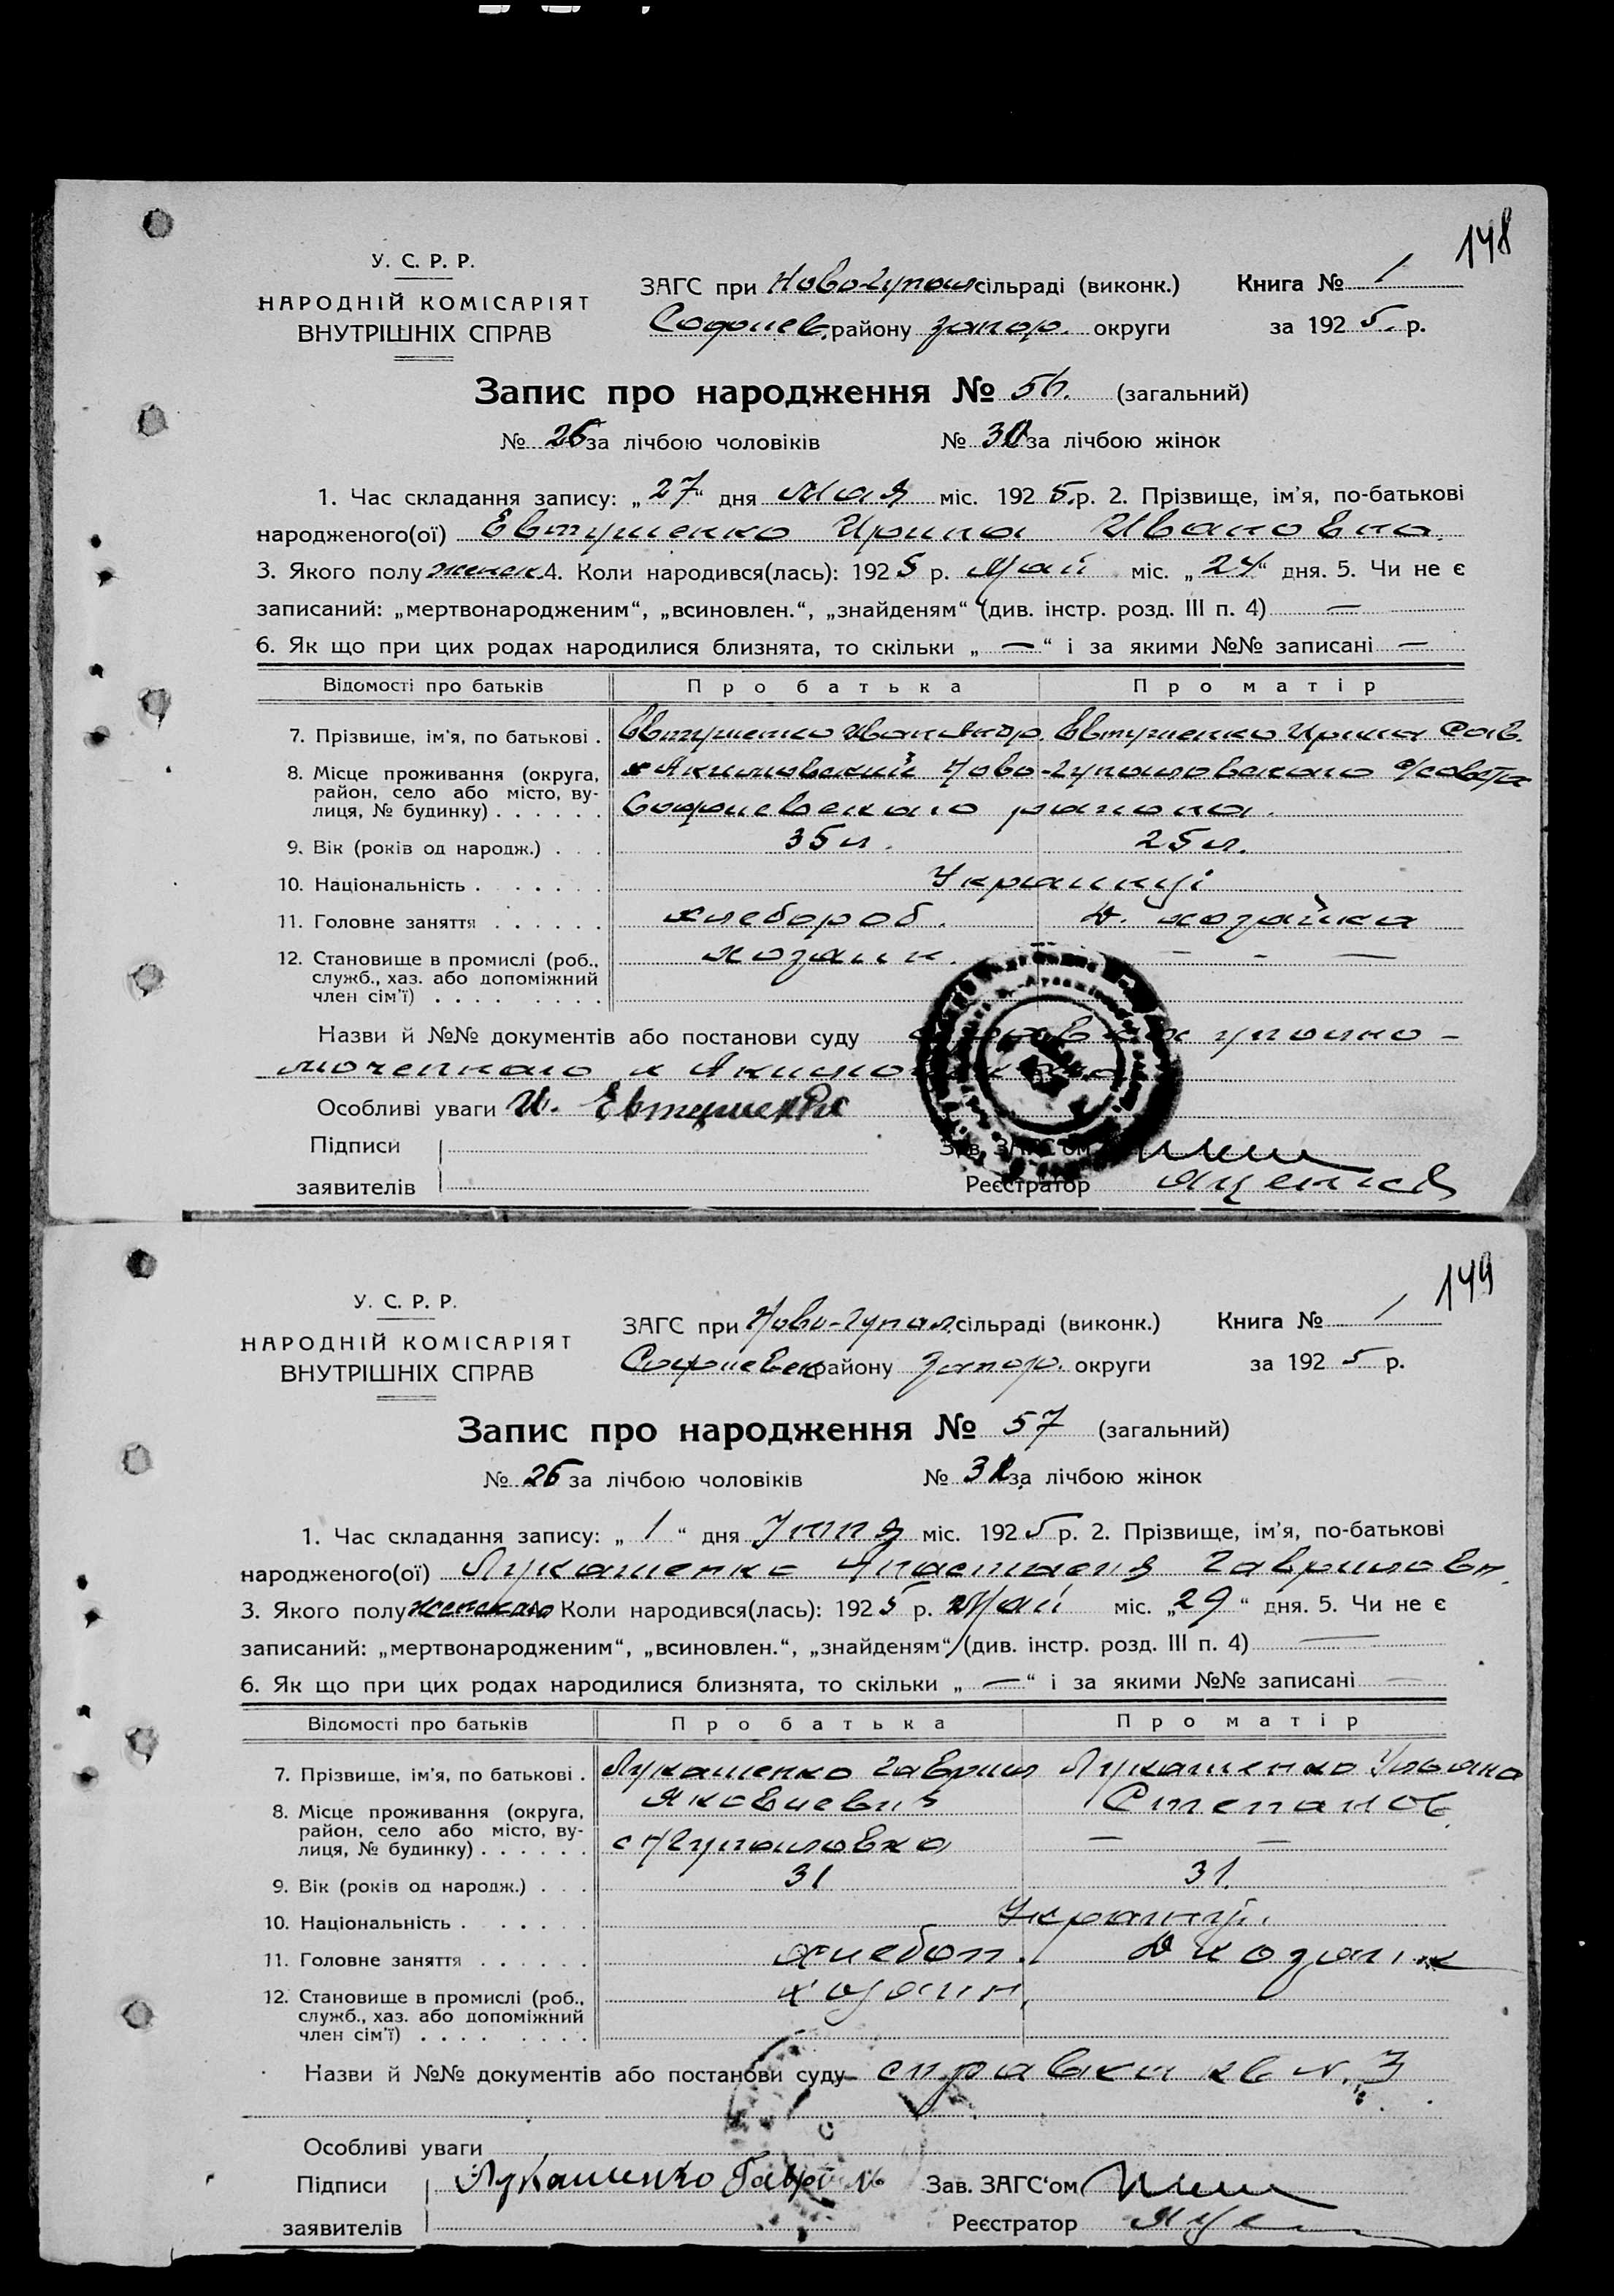 148
У. С. Р. Р.
НАРОДНІЙ КОМІСАРІЯТ
ВНУТРІШНІХ СПРАВ
ЗАГС при Ново-Гупал сільраді (виконк.) Книга № 1
Софиев. району Запор. округи за 1925. р.
Запис про народження № 56. (загальний)
№ 26 за лічбою чоловіків № 30 за лічбою жінок
1. Час складання запису: „27“ дня Мая міс. 1925.р. 2. Прізвище, ім’я, по-батькові
народженого(ої) Евтушенко Ирина Ивановна.
3. Якого полу женск 4. Коли народився(лась): 1925 р. Май міс. „24“ дня. 5. Чи не є
записаний: „мертвонародженим“, „всиновлен.“, „знайденям“ (див. інстр. розд. III п. 4) —
6. Як що при цих родах народилися близнята, то скільки „ — “ і за якими №№ записані —
Відомості про батьків Про батька Про матір
7. Прізвище, ім’я, по батькові . Евтушенко Иван Евтушенко Ирина Сав.
8. Місце проживання (округа, район, село або місто, вулиця, № будинку) . . . . . . х Акимовский Ново-Гупаловского с/совета
Софиевского района.
9. Вік (років од народж.) . . . 35 л. 25 л.
10. Національність . . . . . . Украинці
11. Головне заняття . . . . . . хлебороб. Д. хозяйка
12. Становище в промислі (роб., служб., хаз. або допоміжний член сім’ї) . . . . . . . . хозяин. - - —
Назви й №№ документів або постанови суду справка уполно-
моченного х Акимовского
Особливі уваги И. Евтушенко
Підписи Зав. ЗАГС‘ом
заявителів Реєстратор
149
У. С. Р. Р.
НАРОДНІЙ КОМІСАРІЯТ
ВНУТРІШНІХ СПРАВ
ЗАГС при Ново-Гупал. сільраді (виконк.) Книга № 1
Софиевск району Запор. округи за 1925 р.
Запис про народження № 57 (загальний)
№ 26 за лічбою чоловіків № 31 за лічбою жінок
1. Час складання запису: „ 1 “ дня міс. 1925 р. 2. Прізвище, ім’я, по-батькові
народженого(ої) Лукашенко Анастасия Гавриловн.
3. Якого полу женского Коли народився(лась): 1925 р. Май міс. „29“ дня. 5. Чи не є
записаний: „мертвонародженим“, „всиновлен.“, „знайденям“ (див. інстр. розд. III п. 4) —
6. Як що при цих родах народилися близнята, то скільки „ — “ і за якими №№ записані —
Відомості про батьків Про батька Про матір
7. Прізвище, ім’я, по батькові . Лукашенко Гаврил Лукашенко Ульяна
Яковлевич Степанов.
8. Місце проживання (округа, район, село або місто, вулиця, № будинку) . . . . . . с НГупаловка — —
9. Вік (років од народж.) . . . 31 31.
10. Національність . . . . . . Украинці.
11. Головне заняття . . . . . . хлебоп. Д хозяйк
12. Становище в промислі (роб., служб., хаз. або допоміжний член сім’ї) . . . . . . . . хозяин.
Назви й №№ документів або постанови суду справка кв N. 3
Особливі уваги
Підписи Лукашенко Гаврило Зав. ЗАГС‘ом
заявителів Реєстратор